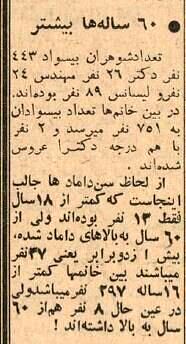 ● ۶۰ ساله‌ها بیشتر
تعداد شوهران بیسواد ۴۴۳
نفر دکتر ۲۶ نفر مهندس ۲۴
نفر و لیسانس ۸۹ نفر بوده‌اند.
در بین خانم‌ها تعداد بیسوادان
به ۷۵۱ نفر میرسد و ۲ نفر
با هم درجه دکترا عروس
شده‌اند.
از لحاظ سن داماد ها جالب
اینجاست که کمتر از ۱۸سال
فقط ۱۳ نفر بوده‌اند ولی از
۶۰ سال به‌بالاهای داماد شده،
بیش از دوبرابر یعنی ۳۷نفر
میباشند بین خانمها کمتر از
۱۶ساله ۲۹۷ نفر میباشد ولی
در عین حال ۸ نفر هم از ۶۰
سال به بالا داشته‌اند!